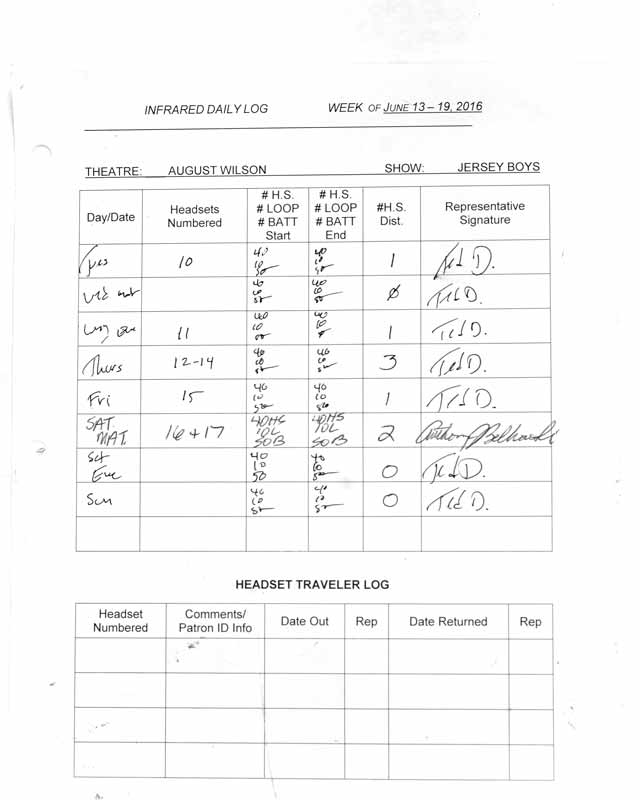 INFRARED DAILY LOG WEEK OF JUNE 13 – 19, 2016
THEATRE: AUGUST WILSON SHOW: JERSEY BOYS
Day/Date
Headsets
Numbered
# H.S.
# LOOP
# BATT
Start
# H.S.
# LOOP
# BATT
End
#H.S.
Dist.
Representative
Signature
10
40
10
50
40
10
50
1
Ted D.
40
10
50
40
10
50
Ø
Ted D.
11
40
10
50
40
10
1
Ted D.
Thurs
12-14
40
10
50
40
10
50
3
Ted D.
Fri
15
40
10
50
40
10
50
1
Ted D.
SAT.
MAT.
16 + 17
40HS
10L
50B
40HS
10L
50B
2
Anthony
Sat
Eve
40
10
50
40
10
50
0
Ted D.
Sun
40
10
50
40
10
50
0
Ted D.
HEADSET TRAVELER LOG
Headset
Numbered
Comments/
Patron ID Info
Date Out
Rep
Date Returned
Rep